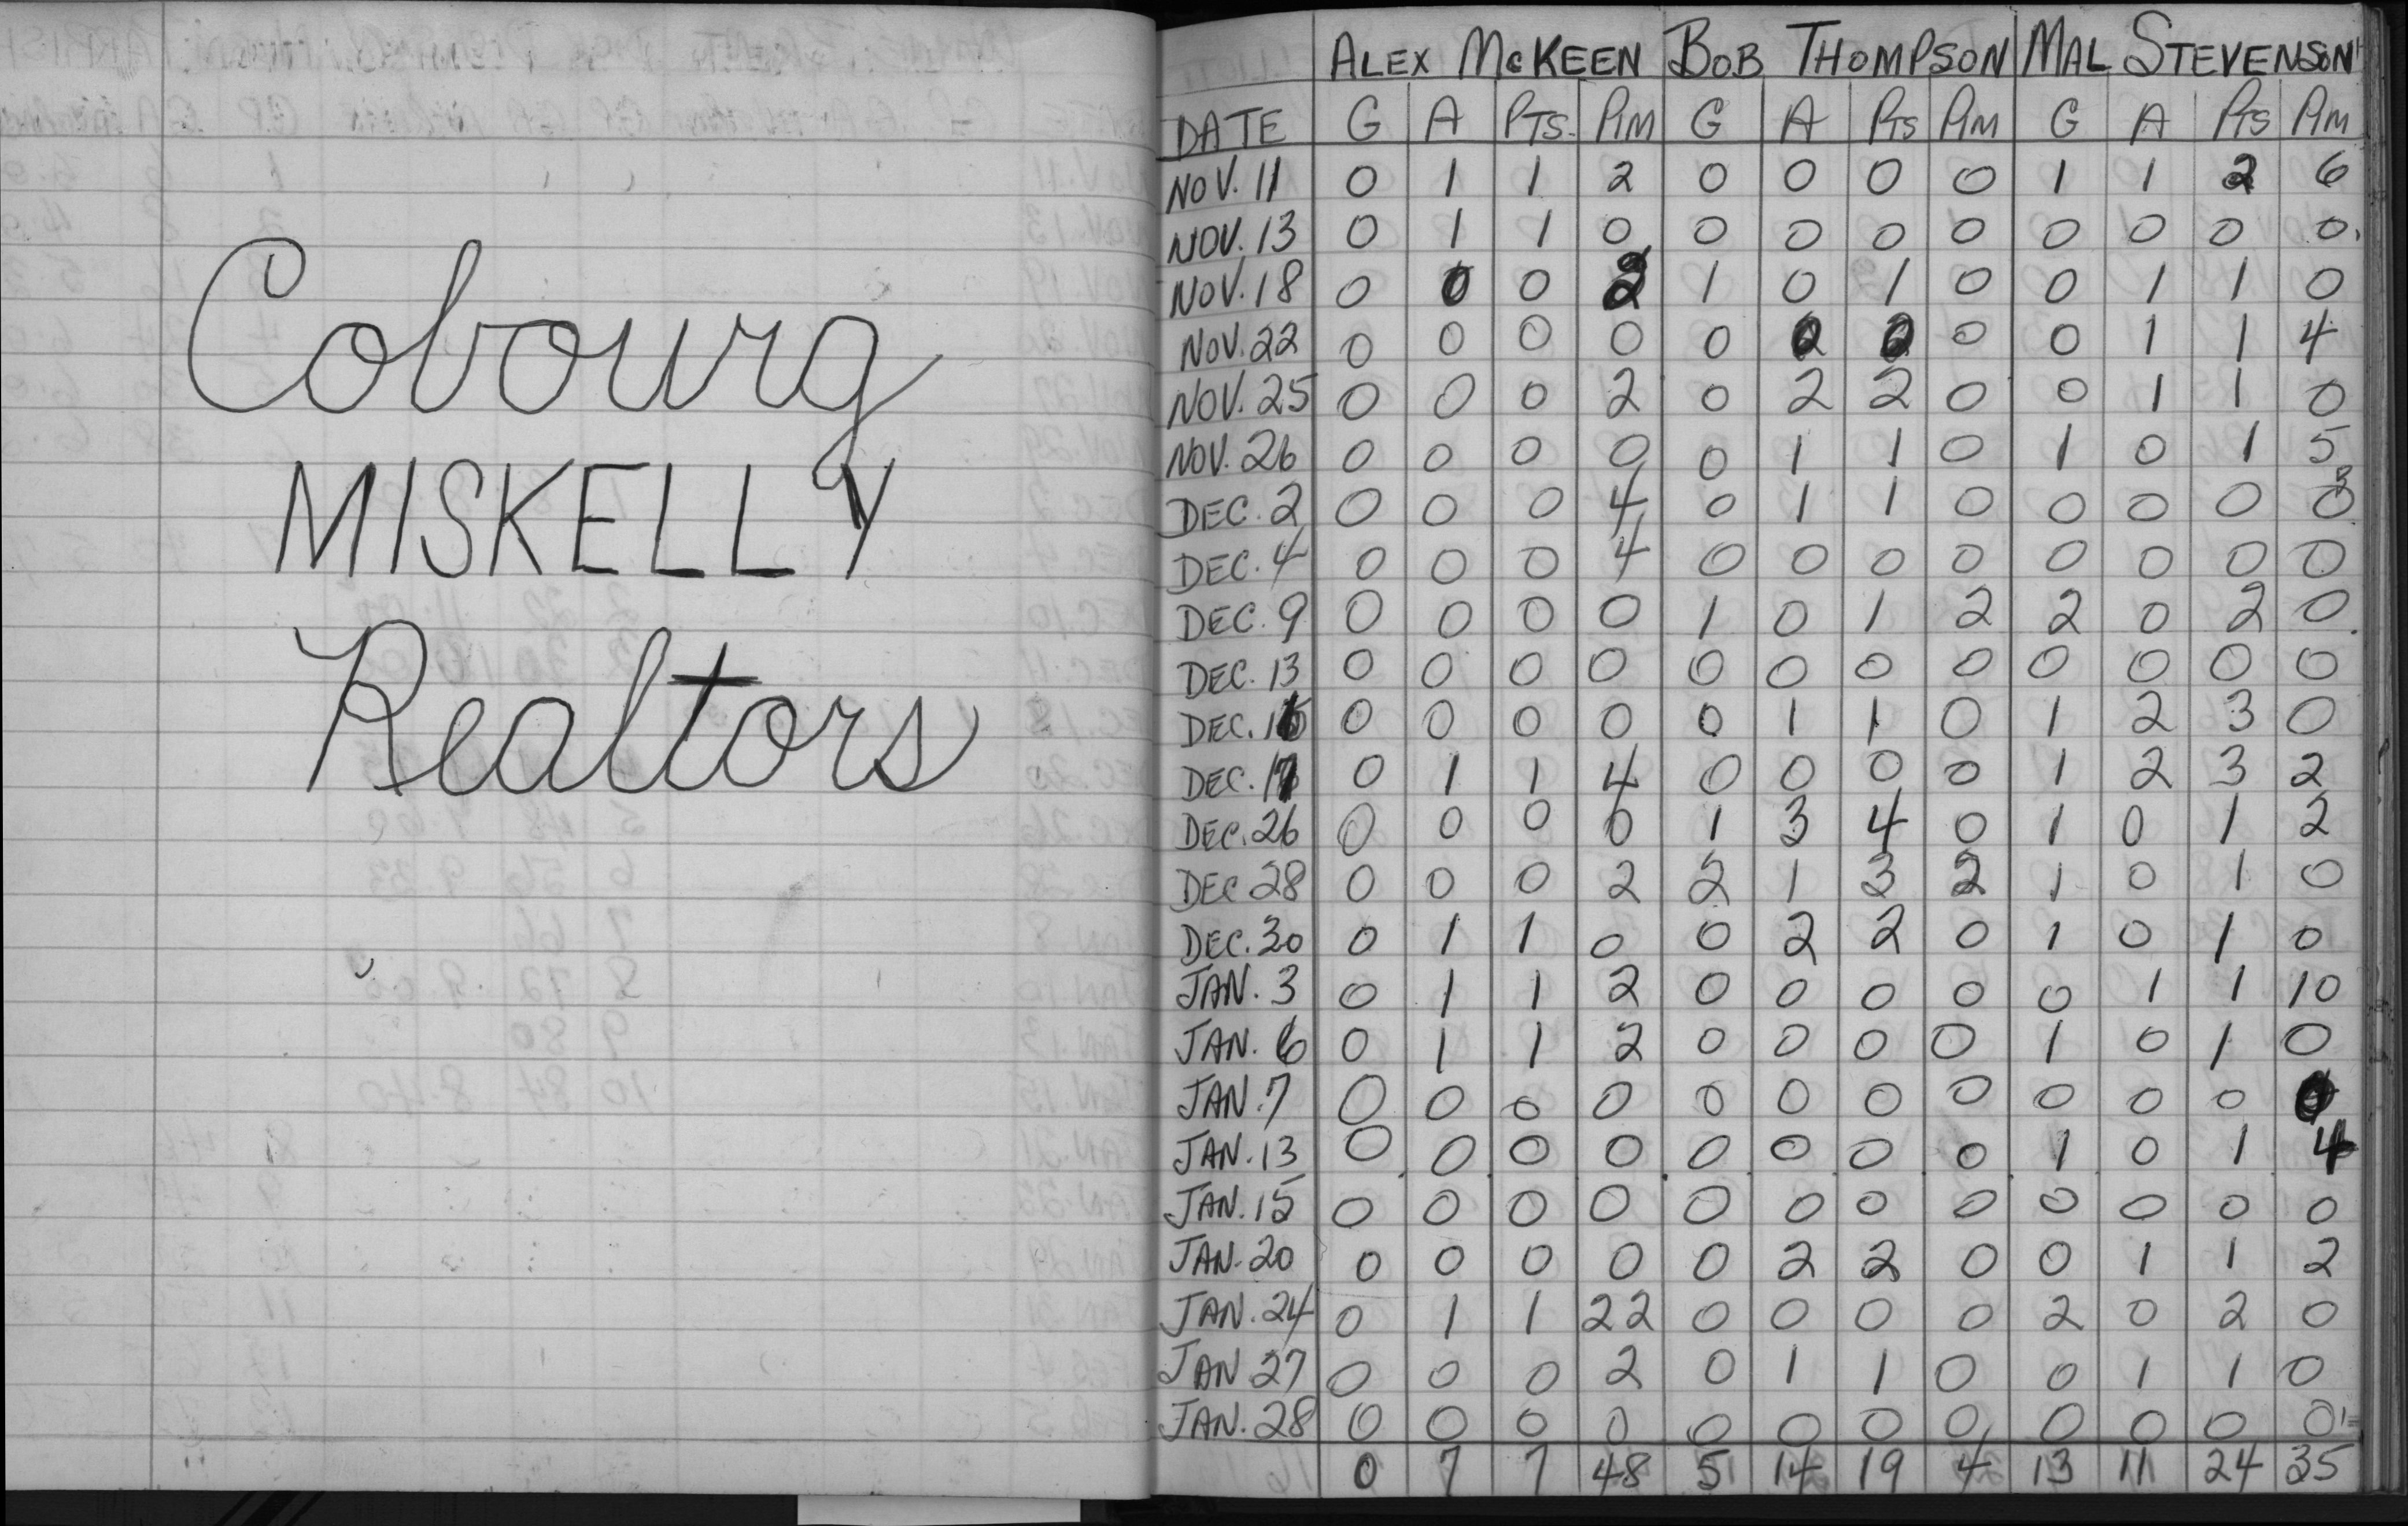 Cobourg
MISKELLY
Realtors
ALEX McKEEN BOB THOMPSON MAL STEVENSON
DATE G A PTS. PIM G A PTS PIM G A PTS PIM
NOV. 11 0 1 1 2 0 0 0 0 1 1 2 6
NOV. 13 0 1 1 0 0 0 0 0 0 0 0 0
NOV. 18 0 0 0 2 1 0 1 0 0 1 1 0
NOV. 22 0 0 0 0 0 0 0 0 0 1 1 4
NOV. 25 0 0 0 2 0 2 2 0 0 1 1 0
NOV. 26 0 0 0 0 0 1 1 0 1 0 1 5
DEC. 2 0 0 0 4 0 1 1 0 0 0 0 0
DEC. 4 0 0 0 4 0 0 0 0 0 0 0 0
DEC. 9 0 0 0 0 1 0 1 2 2 0 2 0
DEC. 13 0 0 0 0 0 0 0 0 0 0 0 0
DEC. 16 0 0 0 0 0 1 1 0 1 2 3 0
DEC. 17 0 1 1 4 0 0 0 0 1 2 3 2
DEC. 26 0 0 0 0 1 3 4 0 1 0 1 2
DEC 28 0 0 0 2 2 1 3 2 1 0 1 0
DEC. 30 0 1 1 0 0 2 2 0 1 0 1 0
JAN. 3 0 1 1 2 0 0 0 0 0 1 1 10
JAN. 6 0 1 1 2 0 0 0 0 1 0 1 0
JAN. 7 0 0 0 0 0 0 0 0 0 0 0 0
JAN. 13 0 0 0 0 0 0 0 0 1 0 1 4
JAN. 15 0 0 0 0 0 0 0 0 0 0 0 0
JAN. 20 0 0 0 0 0 2 2 0 0 1 1 2
JAN. 24 0 1 1 22 0 0 0 0 2 0 2 0
JAN 27 0 0 0 2 0 1 1 0 0 1 1 0
JAN. 28 0 0 0 0 0 0 0 0 0 0 0 0
0 7 7 48 5 14 19 4 13 11 24 35